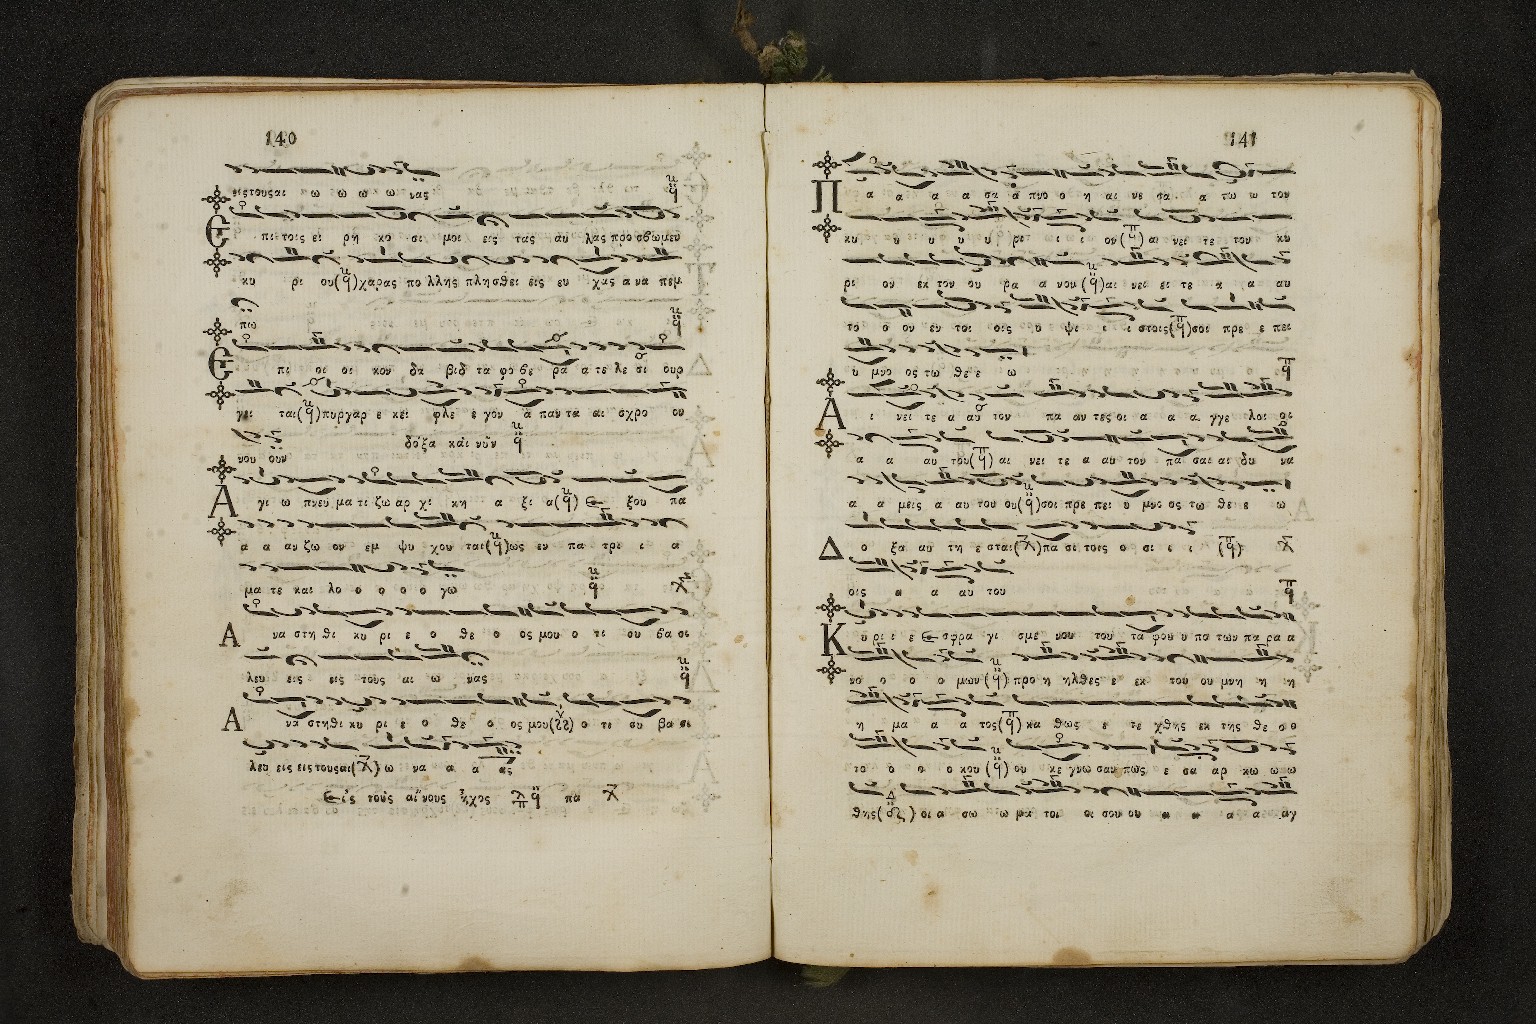 140
εις τους αι ω ω ω ω ω νας
Ε πι τοις ει ρη κο σι μοι εις τας αυ λας προσβωμεν
κυ ρι ου χαρας πο λλης πλησθει εις ευ χας α να πεμ
πω
Ε πι οι οι κον δα βιδ τα φο βε ρα α τε λε σι ουρ
γει ται πυρ γαρ ε κει φλε ε γον α παν τα αι σχρο ον
δόξα καὶ νῦν
νου ουν
Α γι ω πνευ μα τι ζω αρ χι κη α ξι α Ε ξου πα
α α αυ ζω ον εμ ψυ χου ται ως εν πα τρι ι α
μα τε και λο ο ο ο ο γω
Α να στη θι κυ ρι ε ο θε ο ος μου ο τι συ βα σι
λευ εις εις τους αι ω νας
Α να στηθι κυ ρι ε ο θε ο ος μου ο τι συ βα σι
λευ εις εις τους αι ω να α α ας
Εἰς τοὺς αἴνους ἦχος πα
141
Π α α α α σα α πνο ο η αι νε σα α τω ω τον
κυ υ υ υ υ ρι ι ι ον αι νει τε τον κυ
ρι ον εκ των ου ρα α νων αι νει ει τε α α αυ
το ο ον εν τοι οις υ ψι ι ι στοις σοι πρε ε πει
υ μνο ος τω θε ε ω
Α ι νει τε α αυ τον πα αν τες οι α α α γγε λοι οι
α α αυ του αι νει τε α αυ τον πα σαι αι δυ να
α α μεις α αυ του ου σοι πρε πει υ μνο ος τω θε ε ω
Δ ο ξα αυ τη ε σται πα σι τοις ο σι ι ι
οις α α αυ του
Κ υ ρι ι ε Ε σφρα γι σμε νου του τα φου υ πο των πα ρα α
νο ο ο ο μων προ η ηλθες ε εκ του ου μνη η η
η μα α α τος κα θως ε τε χθης εκ της θε ο ο
το ο ο ο κου ου κε γνω σαν πως ε σα αρ κω ω ω
θης οι α σω ω μα τοι οι σου ου α α α α αγ